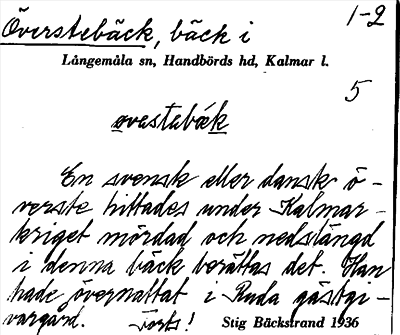 Överstebäck, bäck i 1-2
Långemåla sn, Handbörds hd, Kalmar l.
5
øvastabæk
En svensk eller dansk ö-
verste hittades under Kalmar-
kriget mördad och nedslängd
i denna bäck berättas det. Han
hade övernattat i Ruda gästgi-
vargård. Forts!
Stig Bäckstrand 1936